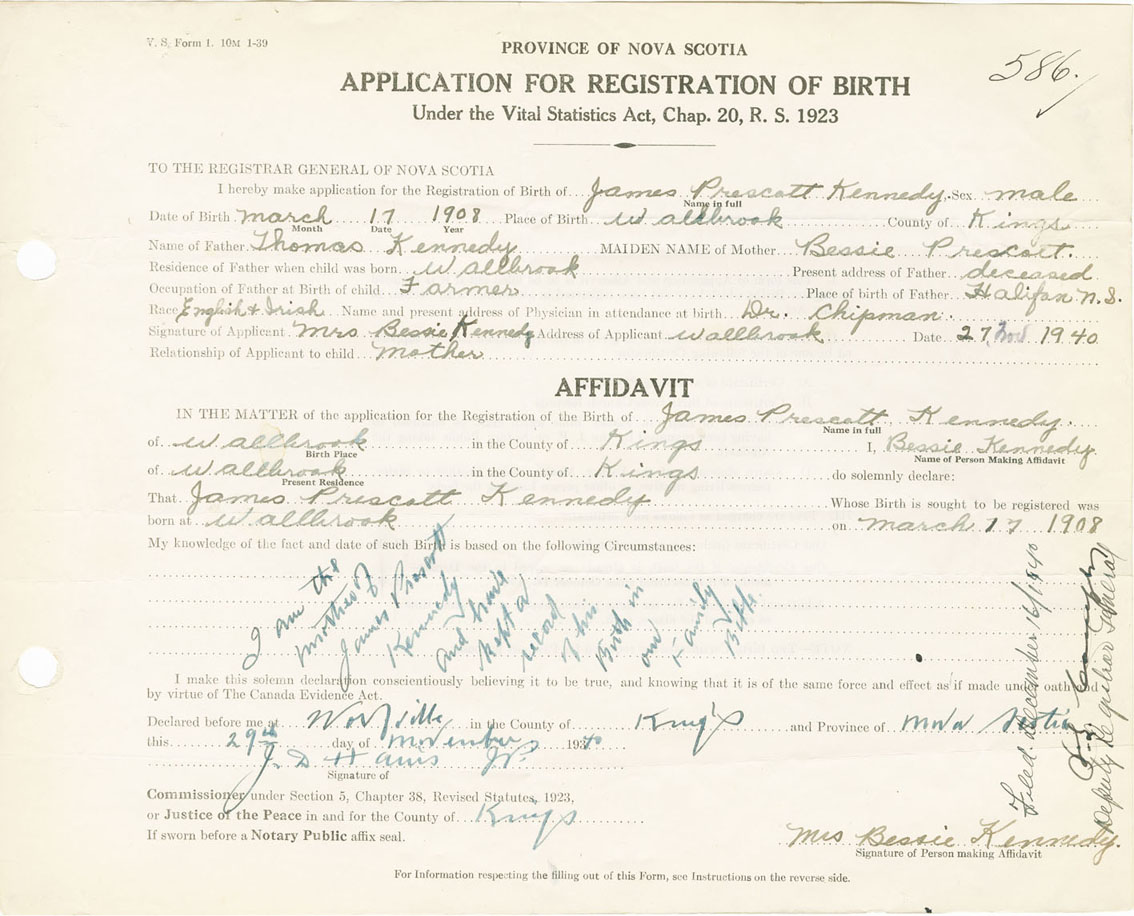 V. S. Form 1. 10M 1-39
586.
PROVINCE OF NOVA SCOTIA
APPLICATION FOR REGISTRATION OF BIRTH
Under the Vital Statistics Act, Chap. 20, R. S. 1923
TO THE REGISTRAR GENERAL OF NOVA SCOTIA
I hereby make application for the Registration of Birth of James Prescott Kennedy Sex male
Name in full
Date of Birth March 17 1908 Place of Birth Wallbrook County of Kings
Month Date Year
Name of Father Thomas Kennedy MAIDEN NAME of Mother Bessie Prescott.
Residence of Father when child was born Wallbrook Present address of Father deceased
Occupation of Father at Birth of child Farmer Place of birth of Father Halifax N.S.
Race English & Irish Name and present address of Physician in attendance at birth Dr. Chipman.
Signature of Applicant Mrs Bessie Kennedy Address of Applicant Wallbrook Date 27 Nov 1940
Relationship of Applicant to child Mother
AFFIDAVIT
IN THE MATTER of the application for the Registration of the Birth of James Prescott Kennedy.
Name in full
of Wallbrook in the County of Kings I, Bessie Kennedy
Birth Place Name of Person Making Affidavit
of Wallbrook in the County of Kings do solemnly declare:
Present Residence
That James Prescott Kennedy Whose Birth is sought to be registered was
born at Wallbrook on March 17 1908
My knowledge of the fact and date of such Birth is based on the following Circumstances:
I am the
mother of
James Prescott
Kennedy
and have
kept a
record
of his
Birth in
our
Family
Bible.
I make this solemn declaration conscientiously believing it to be true, and knowing that it is of the same force and effect as if made under oath and
by virtue of The Canada Evidence Act.
Declared before me at Wolfville in the County of Kings and Province of Nova Scotia
this 29th day of November 1940
J. D Harris JP.
Signature of
Commissioner under Section 5, Chapter 38, Revised Statutes, 1923,
or Justice of the Peace in and for the County of Kings
If sworn before a Notary Public affix seal.
Mrs Bessie Kennedy.
Signature of Person making Affidavit
For Information respecting the filling out of this Form, see Instructions on the reverse side.
Filed December 16/1940
Deputy Registrar General